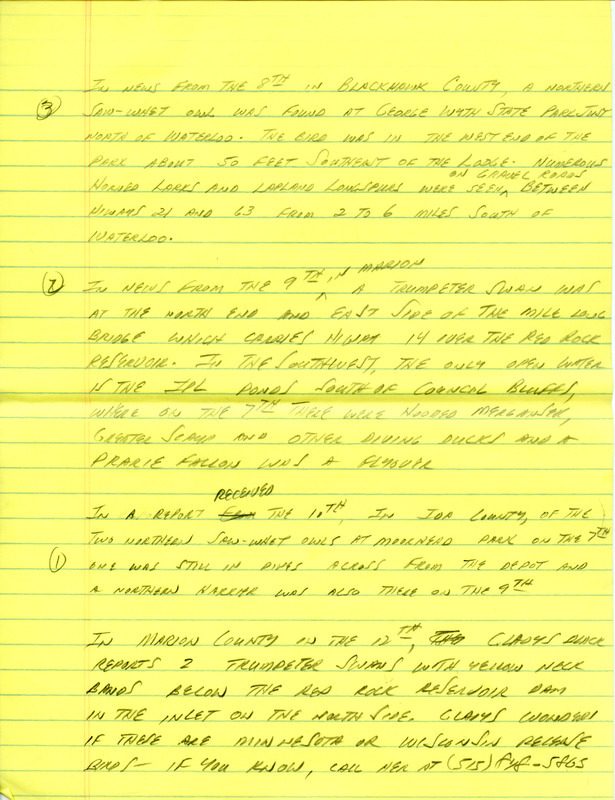 IN NEWS FROM THE 8TH IN BLACKHAWK COUNTY, A NORTHERN
③ SAW-WHET OWL WAS FOUND AT GEORGE WYTH STATE PARK JUST
NORTH OF WATERLOO. THE BIRD WAS IN THE WEST END OF THE
PARK ABOUT 50 FEET SOUTHEAST OF THE LODGE. NUMEROUS
ON GRAVEL ROADS
HORNED LARKS AND LAPLAND LONGSPURS WERE SEEN ^ BETWEEN
HIWAYS 21 AND 63 FROM 2 TO 6 MILES SOUTH OF
WATERLOO.
② IN NEWS FROM THE 9TH ^ IN MARION A TRUMPETER SWAN WAS
AT THE NORTH END AND EAST SIDE OF THE MILE LONG
BRIDGE WHICH CARRIES HIWAY 14 OVER THE RED ROCK
RESERVOIR. IN THE SOUTHWEST, THE ONLY OPEN WATER
IS THE IPL PONDS SOUTH OF COUNCIL BLUFFS,
WHERE ON THE 7TH THERE WERE HOODED MERGANSER,
GREATER SCAUP AND OTHER DIVING DUCKS AND A
PRARIE FALCON WAS A FLYOVER
RECEIVED
IN A REPORT THE 10TH, IN IDA COUNTY, OF THE
TWO NORTHERN SAW-WHET OWLS AT MOORHEAD PARK ON THE 7TH
① ONE WAS STILL IN PINES ACROSS FROM THE DEPOT AND
A NORTHERN HARRIER WAS ALSO THERE ON THE 9TH
IN MARION COUNTY ON THE 12TH, GLADYS BLACK
REPORTS 2 TRUMPETER SWANS WITH YELLOW NECK
BANDS BELOW THE RED ROCK RESERVOIR DAM
IN THE INLET ON THE NORTH SIDE. GLADYS WONDERS
IF THESE ARE MINNESOTA OR WISCONSIN RELEASE
BIRDS - IF YOU KNOW, CALL HER AT (515) 848-5865